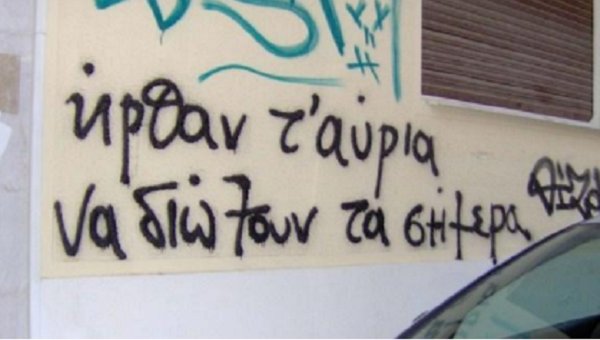 ήρθαν τ'αύρια
να διώξουν τα σήμερα